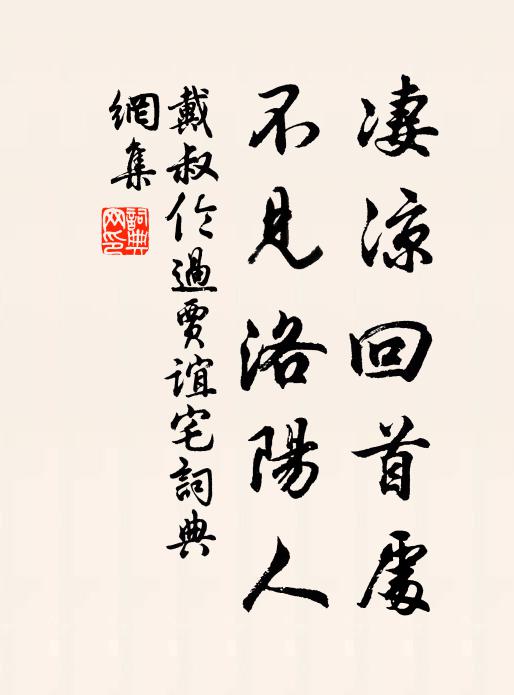 凄涼回首處
不見洛陽人
戴叔伦過賈誼宅詞典
網集
詞典網印